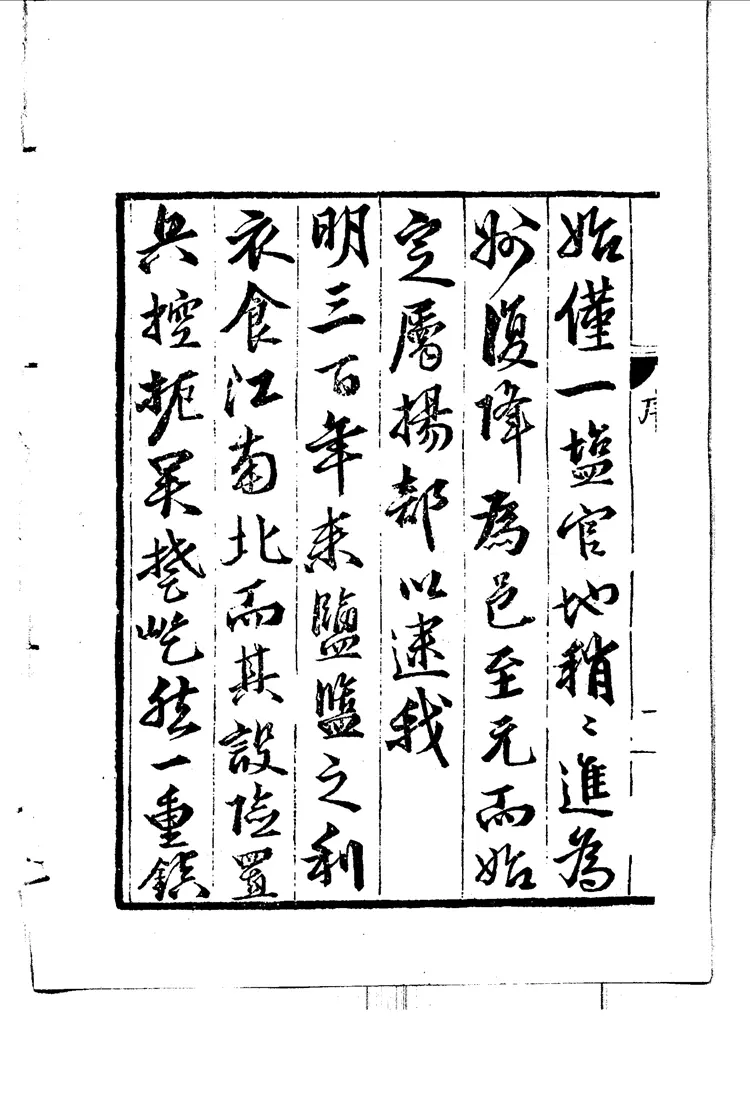 序
始僅一塩官地稍〻進為
州復降為邑至元而始
定屬揚郡以逮我
明三百年來鹽之利
衣食江南北而其設險置
兵控扼吳楚屹然一重鎮